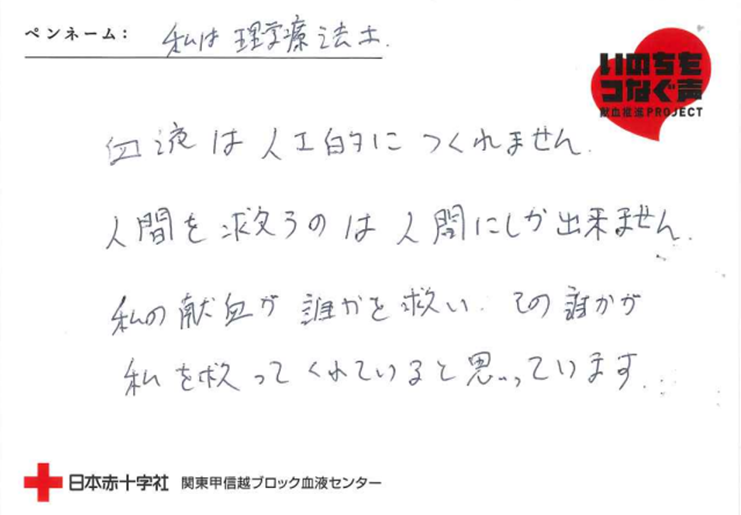 ペンネーム： 私は理学療法士.
いのちを
つなぐ声
献血推進PROJECT
血液は人工的につくれません.
人間を救うのは人間にしか出来ません.
私の献血が誰かを救い. その誰かが
私を救ってくれていると思っています.
日本赤十字社 関東甲信越ブロック血液センター